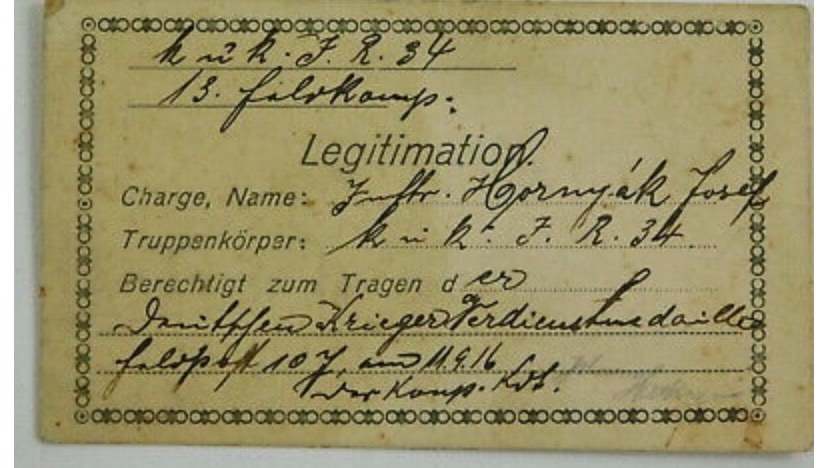 k u k. J. R. 34
13. Feldkomp.
Legitimation.
Charge, Name: Inftr. Hornyák Josef
Truppenkörper: k u k. J. R. 34.
Berechtigt zum Tragen d er
Deutschen Krieger Verdienstmedaille
Feldpost 107, am 11.9.16
Der Komp. Kdt.